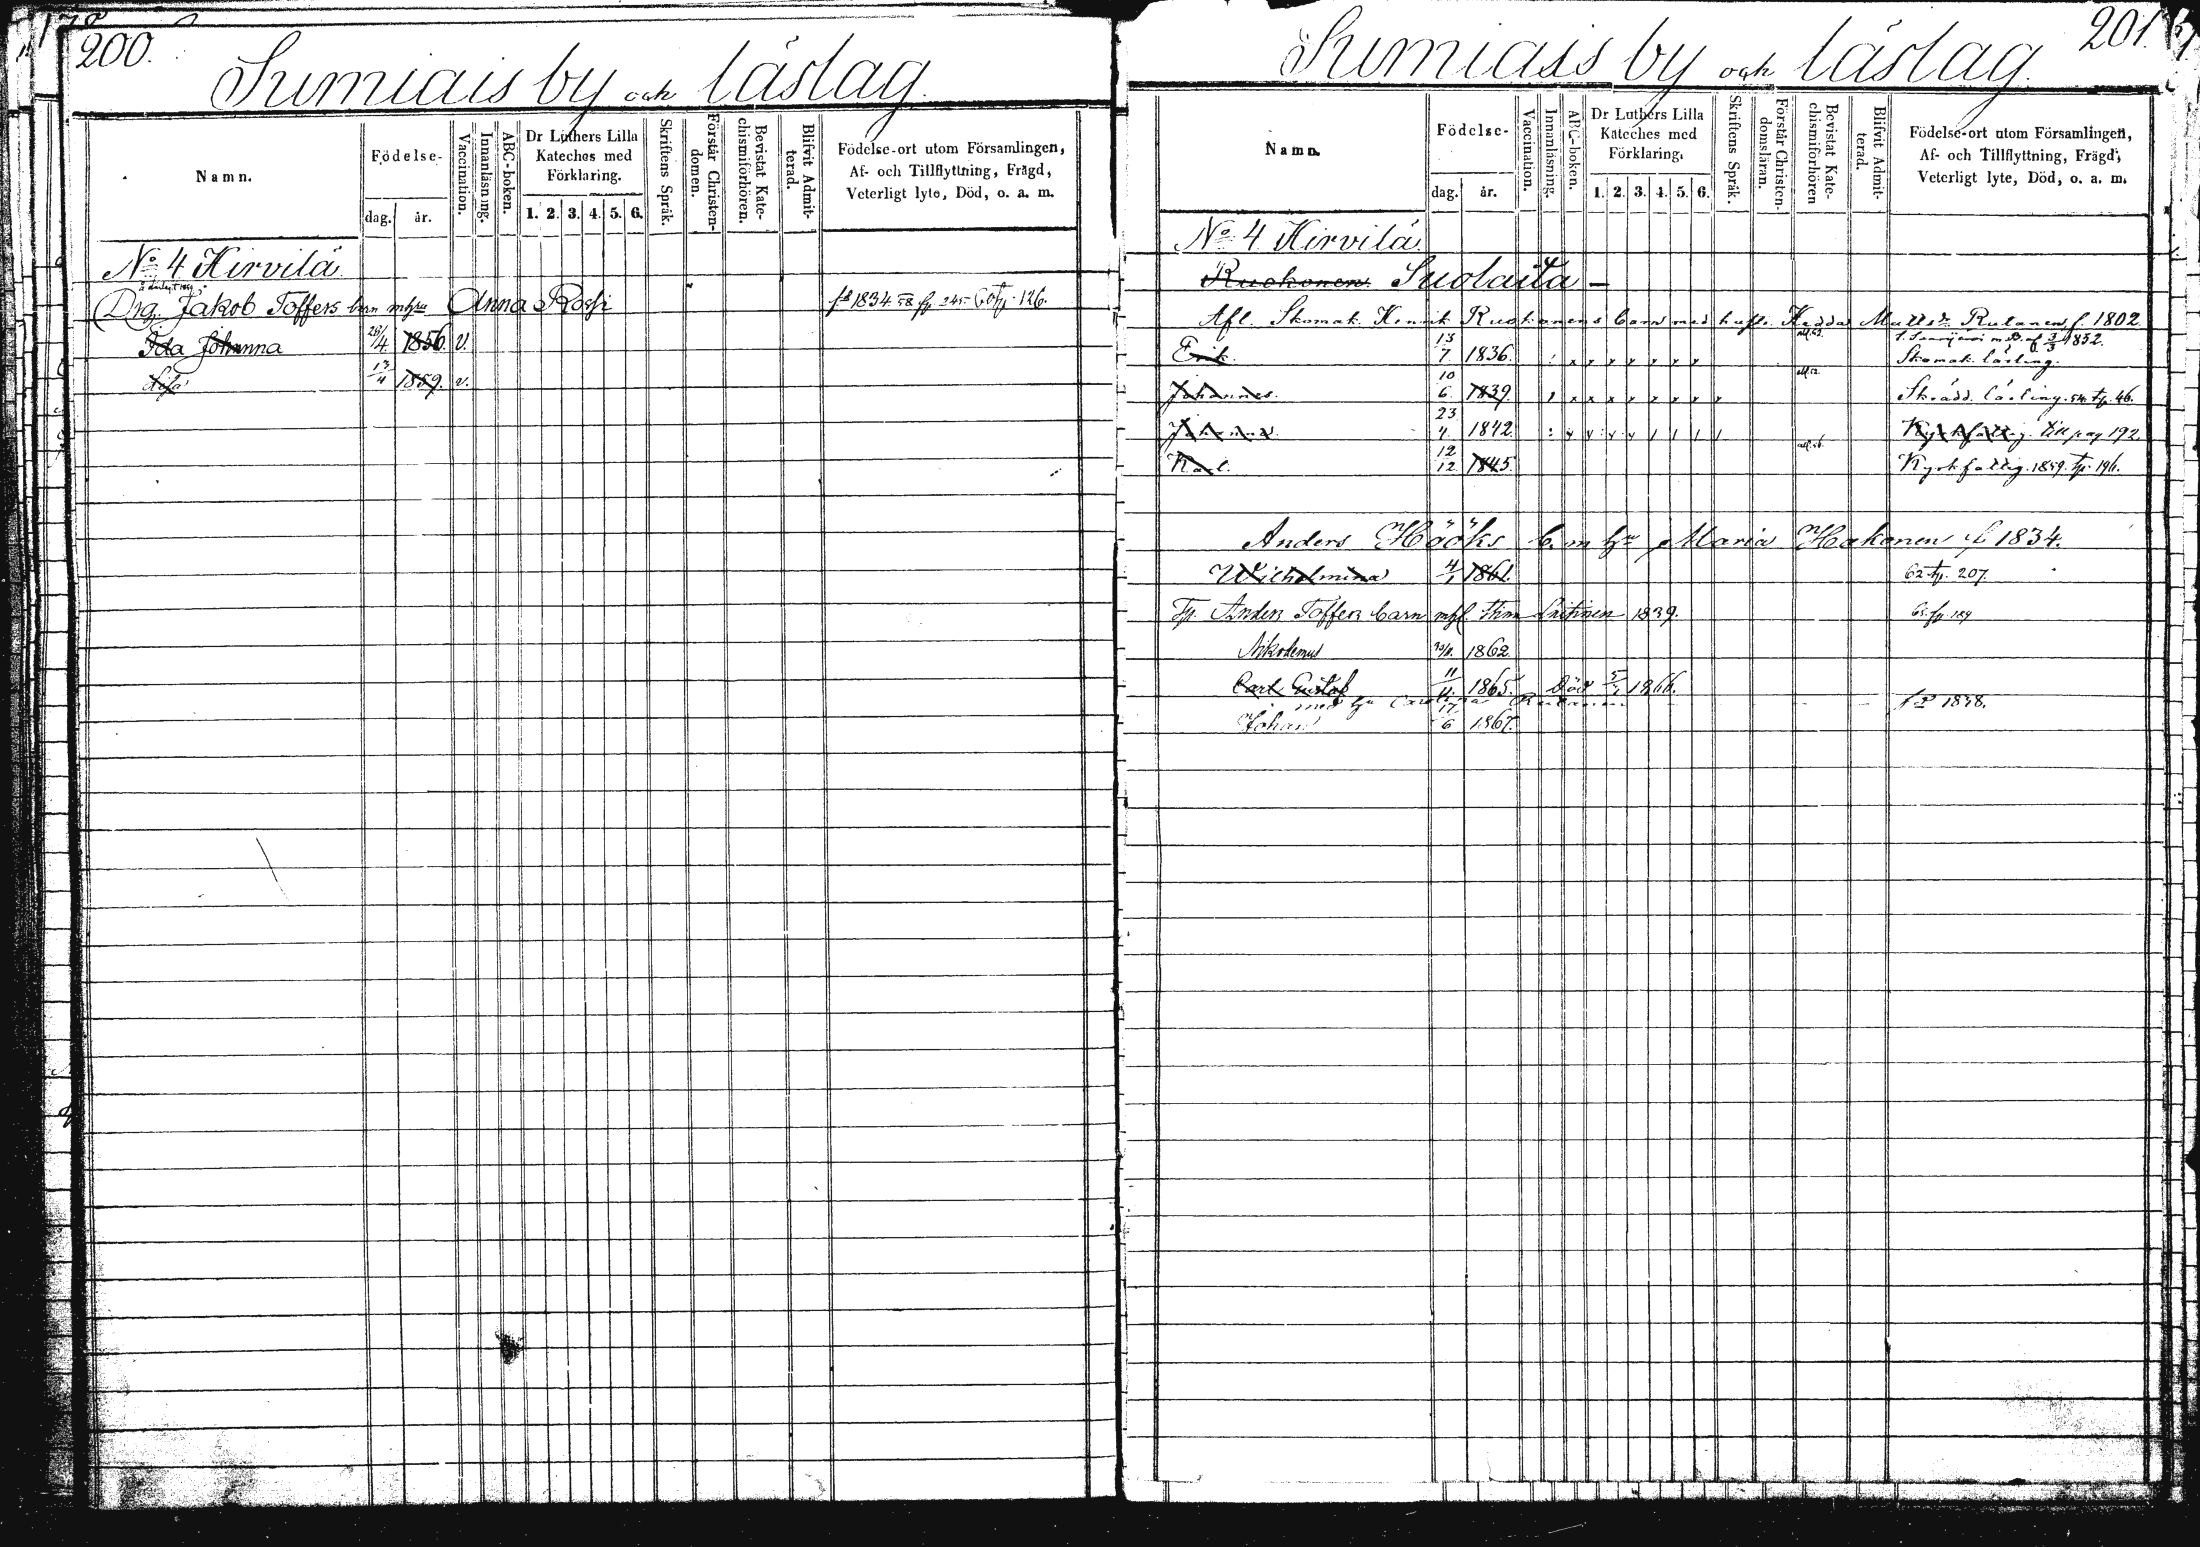 200.
Sumiais by och läslag.
Namn.
Födelse-
dag. år.
Vaccination.
Innanläsning.
ABC-boken.
Dr Luthers Lilla Kateches med Förklaring.
1. 2. 3. 4. 5. 6.
Skriftens Språk.
Förstår Christendomen.
Bevistat Katechismiförhören.
Blifvit Admitterad.
Födelse-ort utom Församlingen,
Af- och Tillflyttning, Frägd,
Veterligt lyte, Död, o. a. m.
No 4 Hirvilä
Drg. Jakob Toffers barn m hu Anna Rossi fd 1834 58 fr 245 60 tp. 126.
Ida Johanna 28/4 1856. v.
Lisa 13/4 1859. v.
201.
Sumiais by och läslag.
Namn.
Födelse-
dag. år.
Vaccination.
Innanläsning.
ABC-boken.
Dr Luthers Lilla
Kateches med
Förklaring.
1. 2. 3. 4. 5. 6.
Skriftens Språk.
Förstår Christendomsläran.
Bevistat Katechismiförhören
Blifvit Admitterad.
Födelse-ort utom Församlingen,
Af- och Tillflyttning, Frägd,
Veterligt lyte, Död, o. a. m.
No 4 Hirvilä
Ruokonen Suolaita
Afl. Skomak. Henrik Ruokonens barn med hust. Hedda Mattsdr Rutanen f. 1802
Erik 13/7 1836. Skomak. lärling.
Johannes. 10/6 1839 Skrädd. lärling. tp. 46.
Johanna 23/4 1842 till pag 192
Karl. 12/12 1845. Kyrkfattig. 1859. tp. 196.
Anders Höök's b. m hu Maria Hakonen f 1834.
Wilhelmina 4/1 1861. 62 tp. 207.
Tp. Anders Toffers barn 1839.
Nikodemus 1862.
Carl Gustaf 11/11 1865. Död 5/1 1866.
med hu Carolina Rutanen fd 1838.
Johan 17/6 1867.